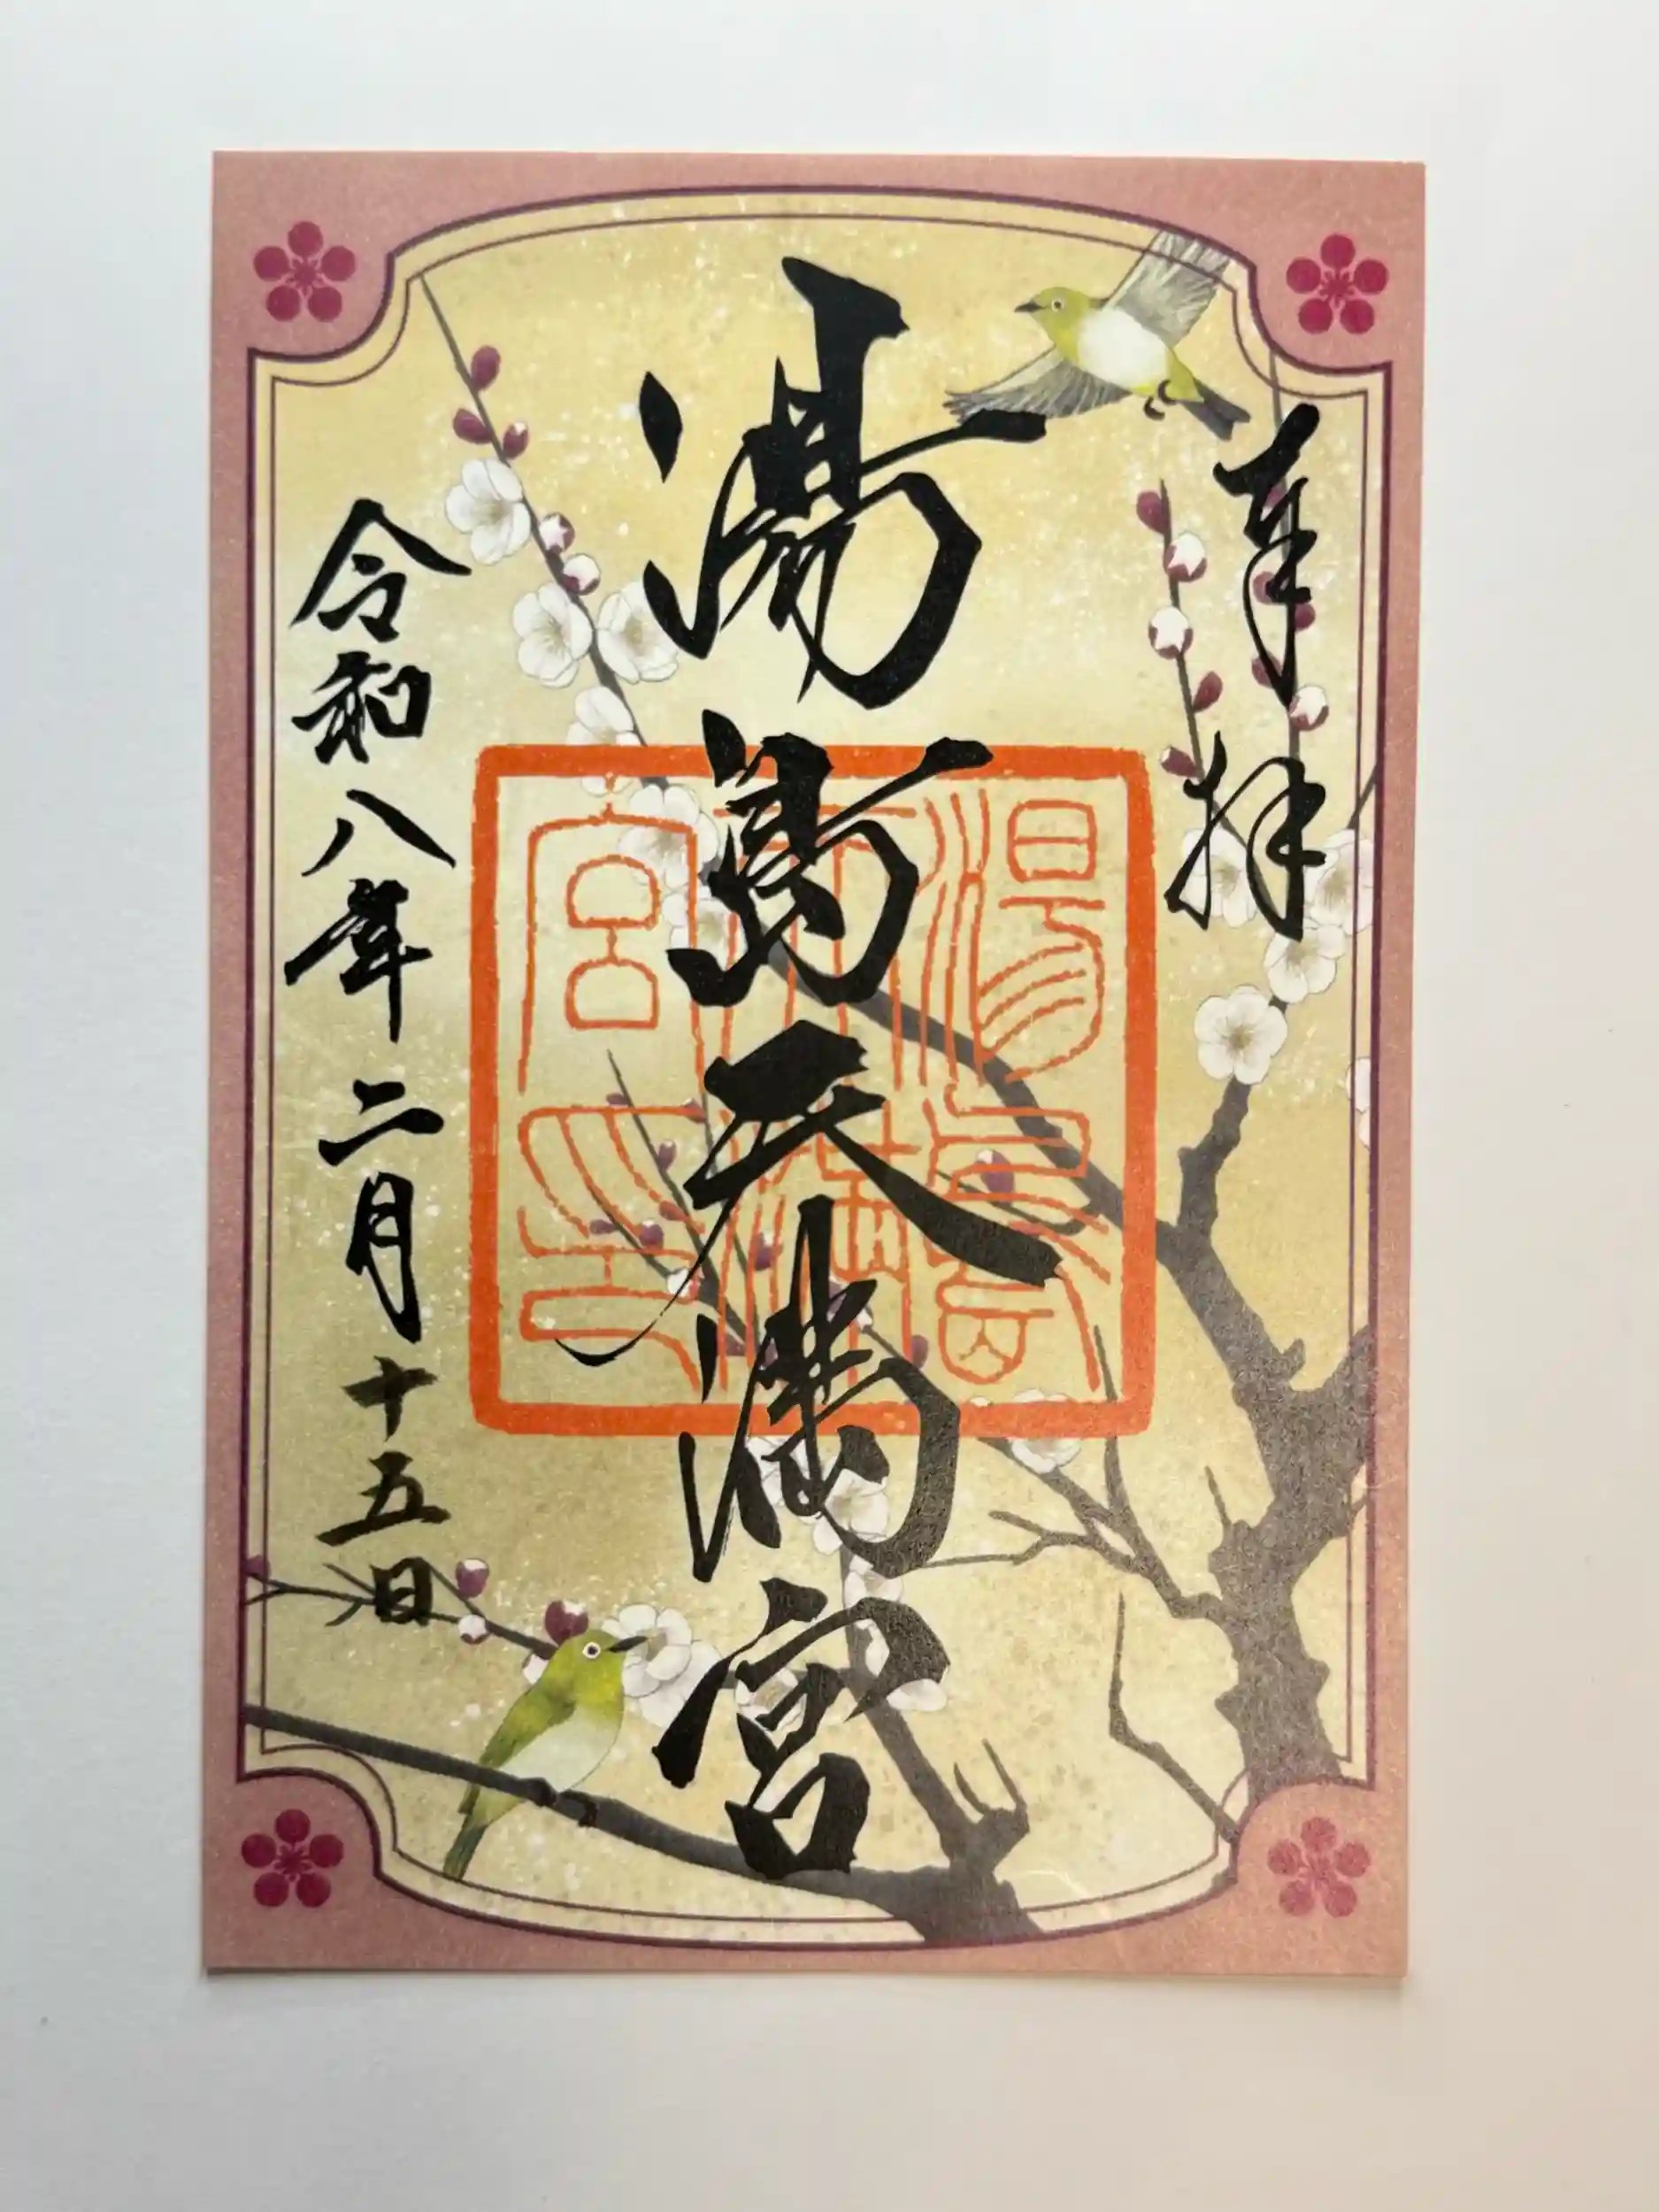 奉拝
湯島天満宮
令和八年二月十五日
湯島
天満
宮印